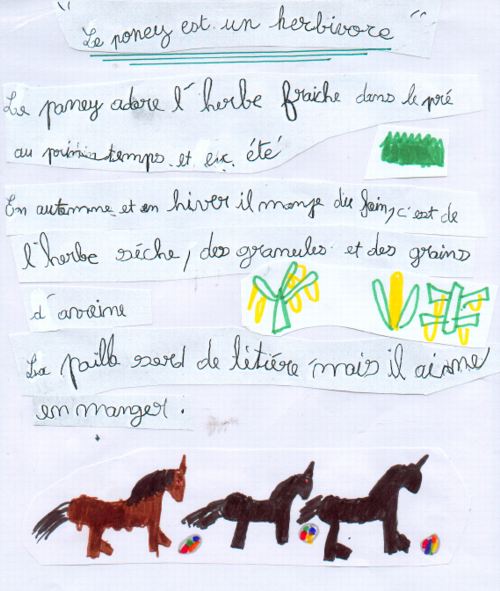 "Le poney est un herbivore"
Le poney adore l'herbe fraiche dans le pré
au printemps et en été
En automne et en hiver il mange du foin, c'est de
l'herbe séche, des granules et des grains
d'avoine
La paille sard de litiére mais il aime
en manger.